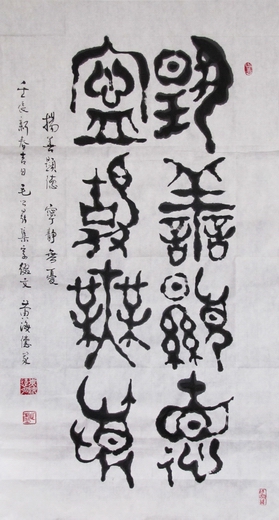 揚善顯德
寧靜無憂
揚善顯德 寧靜無憂
壬辰新春吉日 毛公鼎集字 文 黃